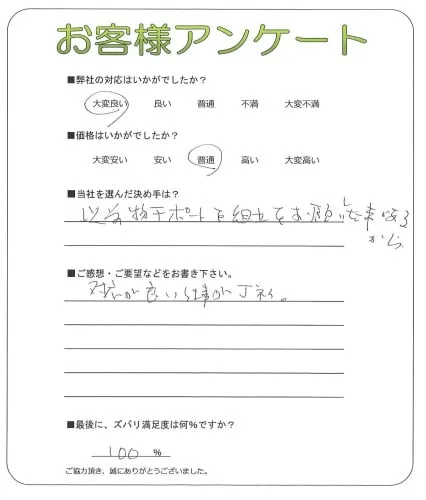 お客様アンケート
■弊社の対応はいかがでしたか？
大変良い 良い 普通 不満 大変不満
■価格はいかがでしたか？
大変安い 安い 普通 高い 大変高い
■当社を選んだ決め手は？
以前物干ポートを組立をお願いした事が有る
から
■ご感想・ご要望などをお書き下さい。
対応が良い 仕事が丁ネイ。
■最後に、ズバリ満足度は何％ですか？
100 ％
ご協力頂き、誠にありがとうございました。